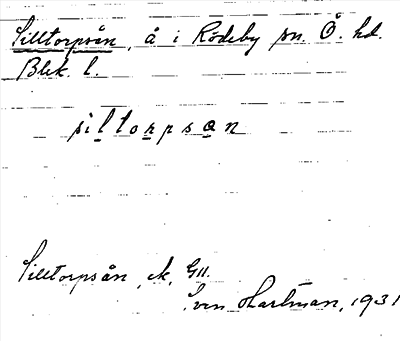 Silltorpsån, å i Rödeby sn. Ö. hd.
Blek. l.
siltorpsan
Silltorpsån, ek. G11.
Sven Hartman, 1931